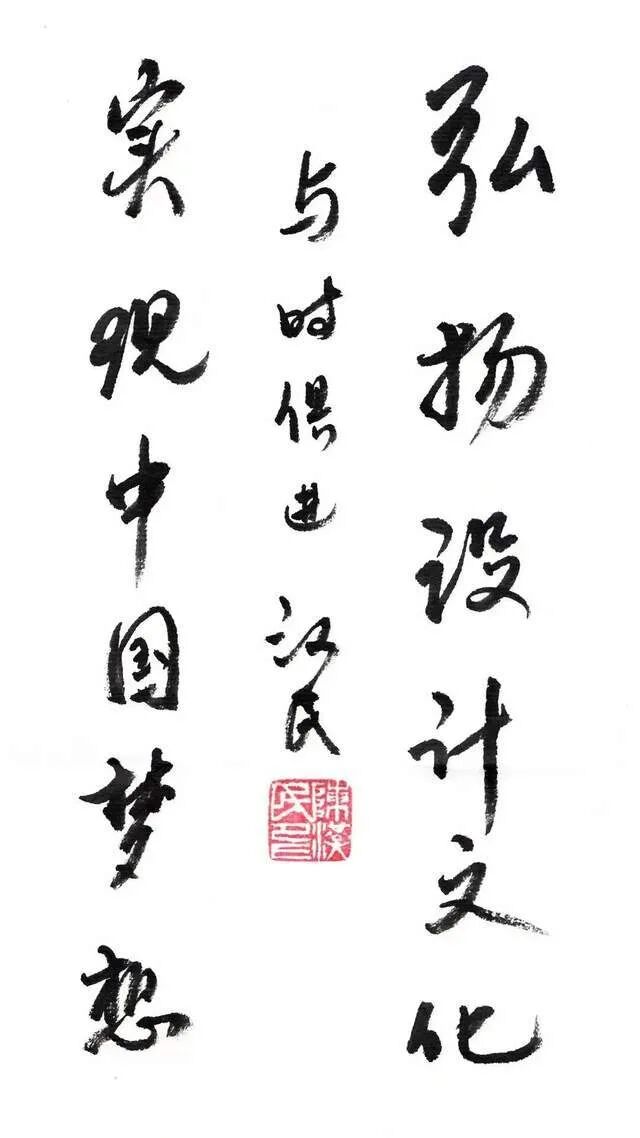 弘扬设计文化
与时俱进 汉民
陳漢民印
实现中国梦想